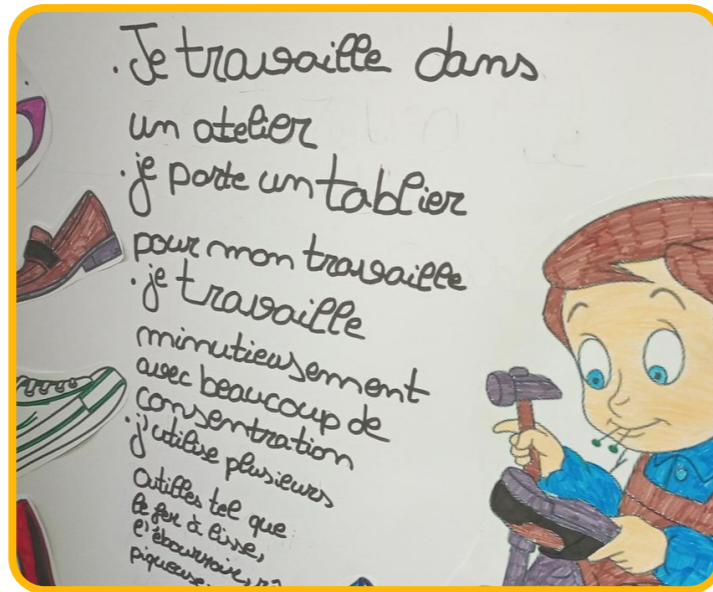 . Je travaille dans
un atelier
. je porte un tablier
pour mon travaille
. je travaille
minutieusement
avec beaucoup de
consentration
. j'utilise plusieurs
outilles tel que
le fer à lisse,
l'ébourroir,
piqueuse